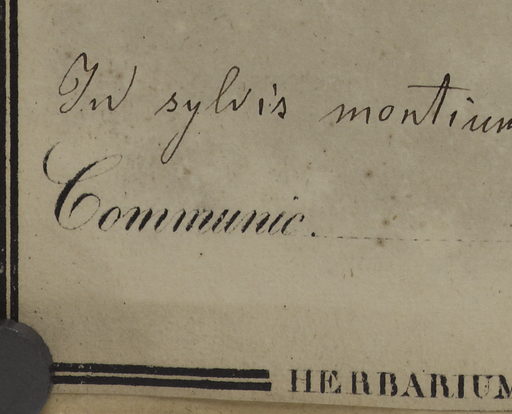 In sylvis montium
Communic.
HERBARIUM